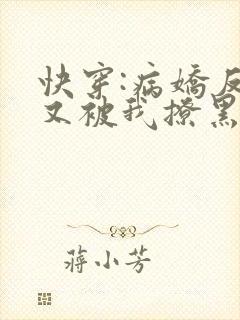 快穿:病娇反
又被我撩黑
蒋小芳